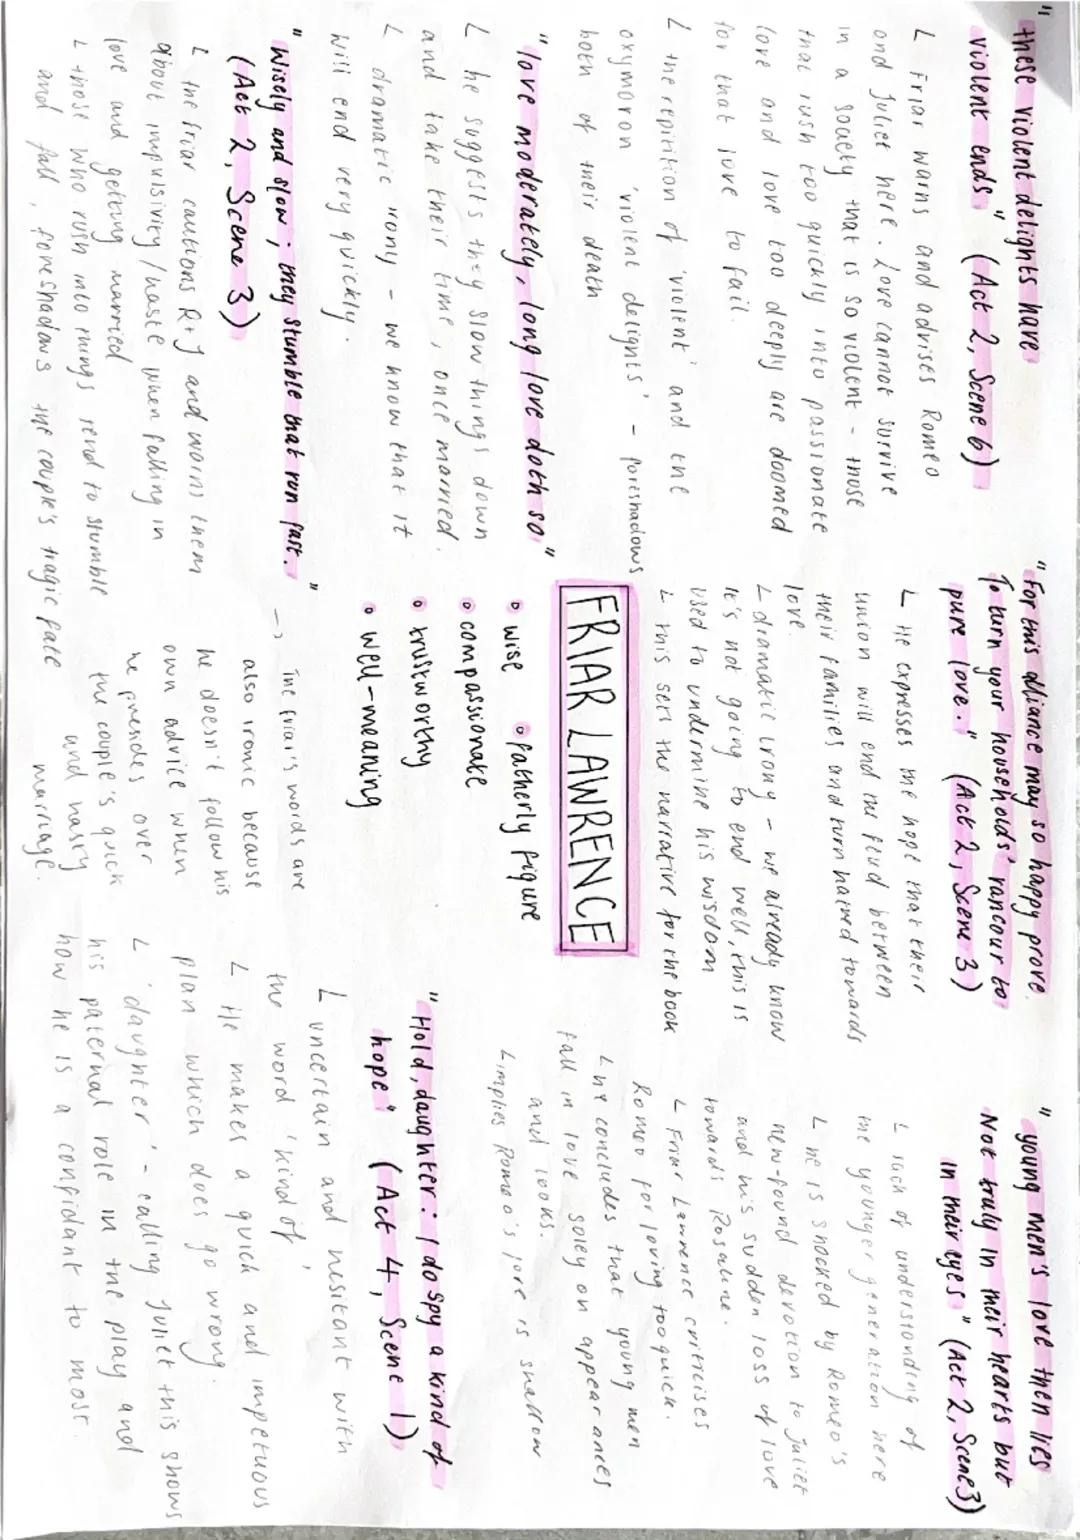 "these violent delights have
violent ends" (Act 2, Scene 6)
L Friar warns and advises Romeo
and Juliet here. Love cannot survive
in a society that is so violent - those
that rush too quickly into passionate
love and love too deeply are doomed
for that love to fail.
L the repitition of 'violent' and the
oxymoron 'violent delights' - foreshadows
both of their death
"love moderately, long love doth so"
L he suggests they slow things down
and take their time, once married.
L dramatic irony - we know that it
will end very quickly.
"Wisely and slow; they stumble that run fast."
(Act 2, Scene 3)
L the friar cautions R+J and warns them
about impulsivity/haste when falling in
love and getting married
L those who rush into things tend to stumble
and fall, foreshadows the couple's tragic fate
"For this alliance may so happy prove
To turn your households' rancour to
pure love." (Act 2, Scene 3)
L He expresses the hope that their
union will end the feud between
their families and turn hatred towards
love.
L dramatic irony - we already know
it's not going to end well, this is
used to undermine his wisdom
L this sets the narrative for the book
FRIAR LAWRENCE
• wise • fatherly figure
• compassionate
• trustworthy
• well-meaning
-> The friar's words are
also ironic because
he doesn't follow his
own advice when
he presides over
the couple's quick
and hasty
marriage.
"young men's love then lies
Not truly in their hearts but
in their eyes" (Act 2, Scene 3)
L lack of understanding of
the younger generation here
L he is shocked by Romeo's
new-found devotion to Juliet
and his sudden loss of love
towards Rosaline.
L Friar Lawrence criticises
Romeo for loving too quick.
L he concludes that young men
fall in love soley on appearances
and looks.
L implies Romeo's love is shallow
"Hold, daughter: I do spy a kind of
hope" (Act 4, Scene 1)
L uncertain and hesitant with
the word 'kind of'
L He makes a quick and impetuous
plan which does go wrong.
L 'daughter' - calling Juliet this shows
his paternal role in the play and
how he is a confidant to most